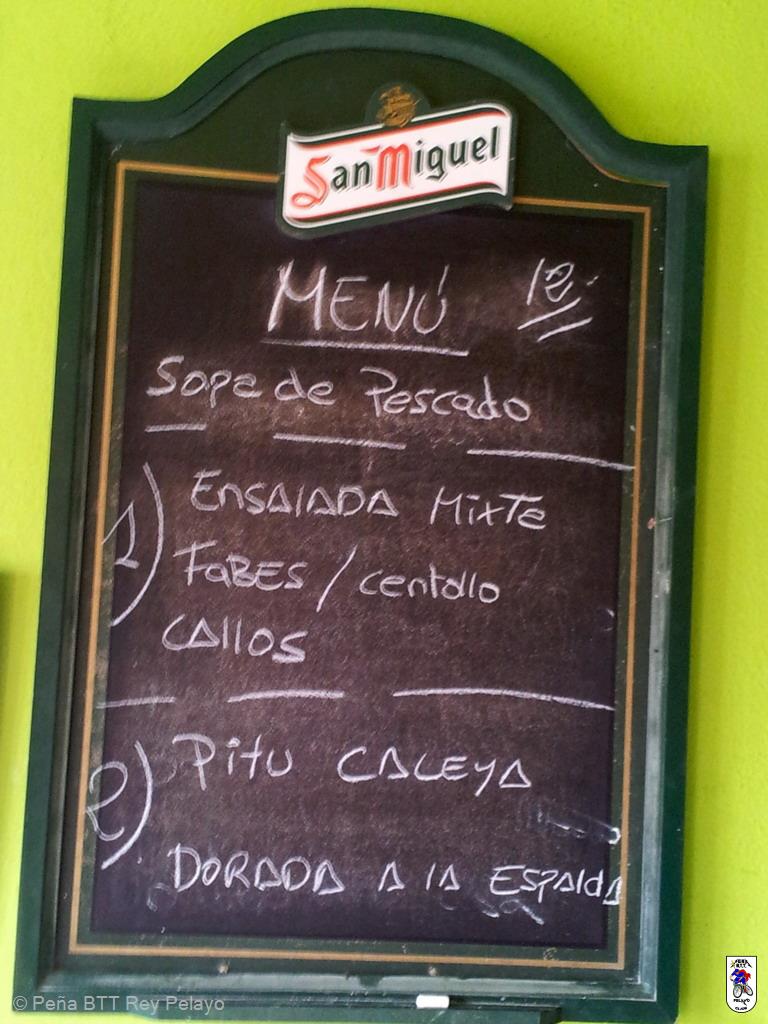 San Miguel
MENÚ 12
Sopa de Pescado
1) ENSAlADA MixTe
FABES / centollo
CAllOS
2) Pitu CALEYA
DORADA A lA ESPAldA
© Peña BTT Rey Pelayo